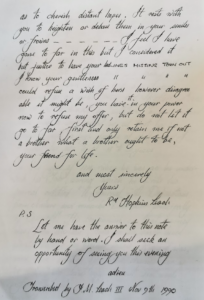 as to cherish distant hope. It rests with
you to brighten or darken them in your smiles
or frowns — — — — I feel I have
gone to far in this but I considered it
but justice to have your
I know your guiltless " " " "
could refuse a wish of hers however disagree
able it might be you have in your power
now to refuse my offer, but do not let it
go to far first and only retain me if not
a brother what a brother ought to be,
your friend for life.
and most sincerely
Yours
Rd Hopkins
P.S
Let me have the answer to this note
by hand or word. I shall seek an
opportunity of seeing you this evening
adieu
Transcribed by H.M. III Nov 9th 1990